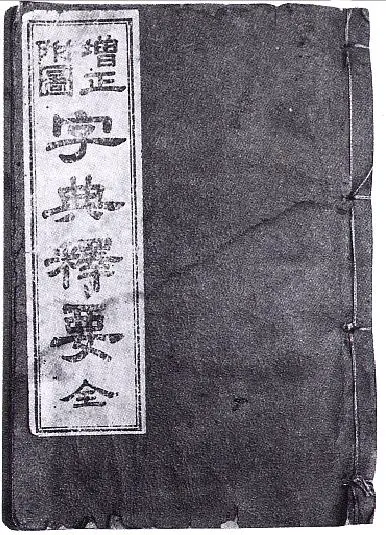 增正附圖
字典釋要
全